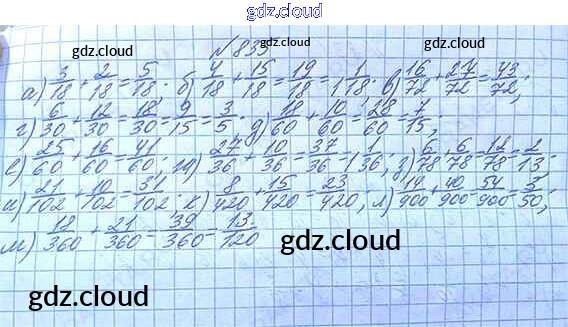 gdz.cloud
gdz.cloud № 835 gdz.cloud
а) 3/18 + 2/18 = 5/18. б) 4/18 + 15/18 = 19/18 = 1 1/18. в) 16/72 + 27/72 = 43/72;
г) 6/30 + 12/30 = 18/30 = 9/15 = 3/5; д) 18/60 + 10/60 = 28/60 = 7/15;
е) 25/60 + 16/60 = 41/60; ж) 27/36 + 10/36 = 37/36 = 1 1/36; з) 6/78 + 6/78 = 12/78 = 2/13.
и) 21/102 + 10/102 = 31/102. к) 8/420 + 15/420 = 23/420; л) 14/900 + 40/900 = 54/900 = 3/50;
м) 18/360 + 21/360 = 39/360 = 13/120
gdz.cloud
gdz.cloud gdz.cloud